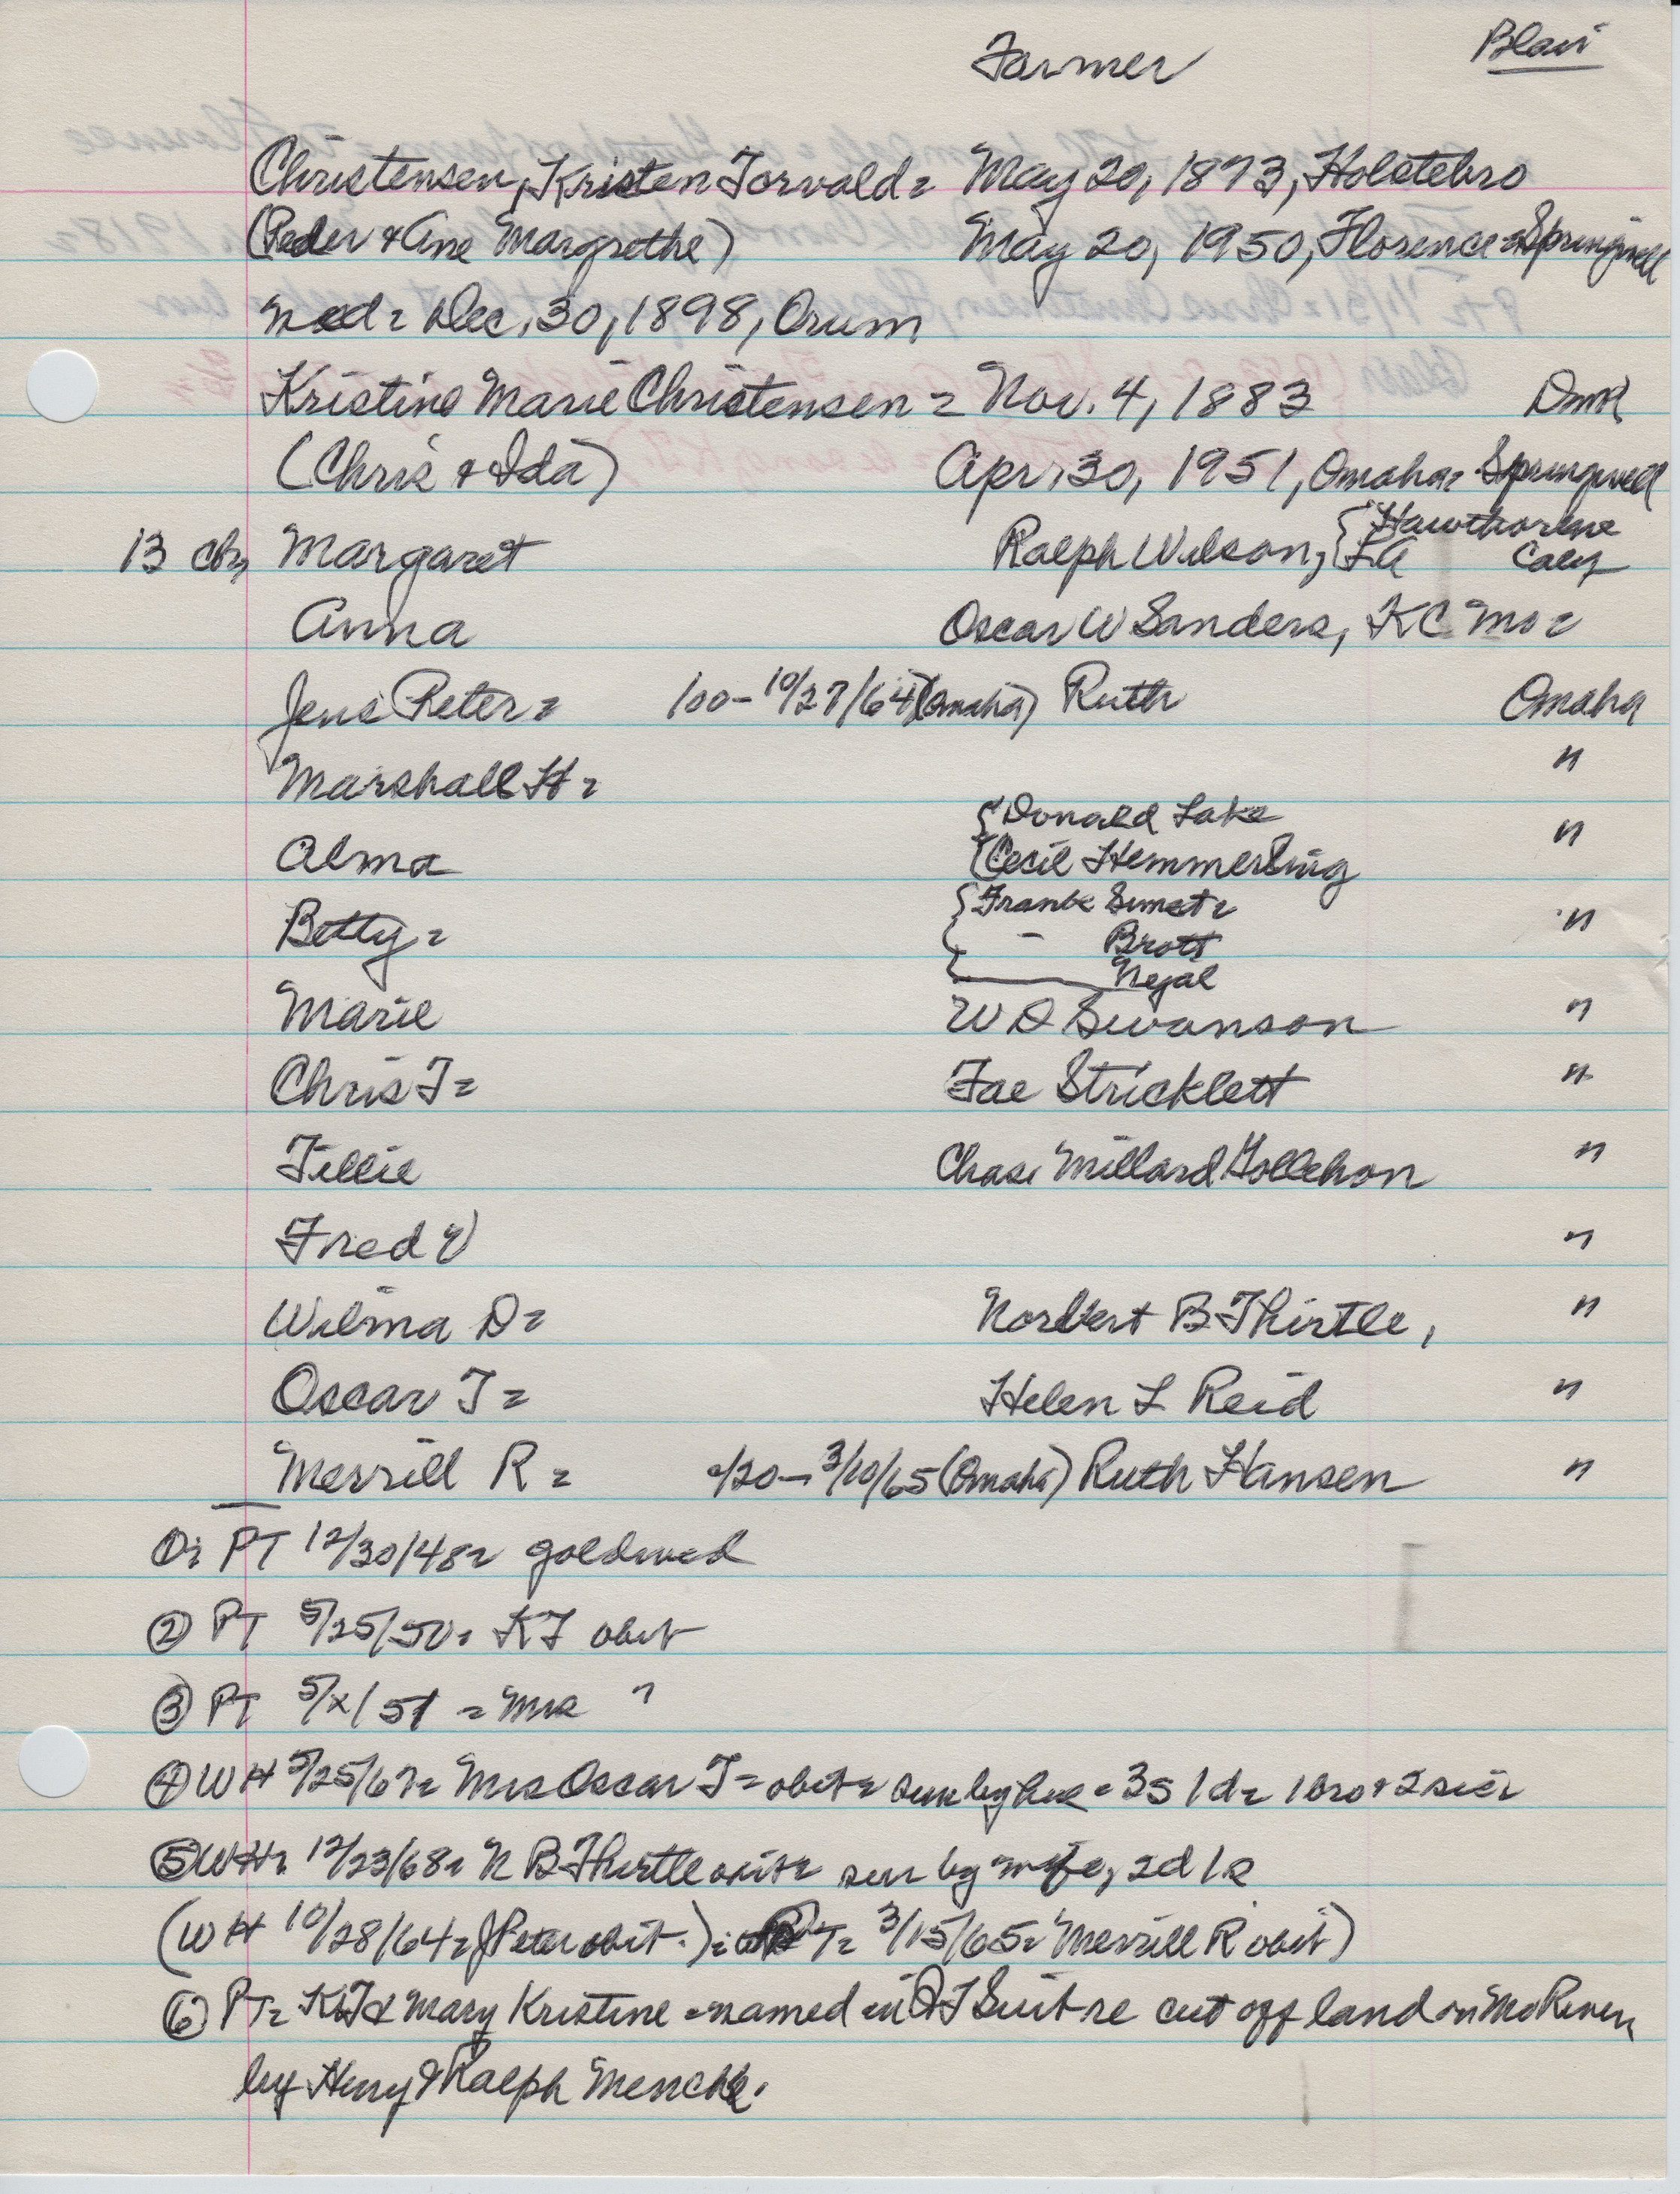 Farmer Blair
Christensen, Kristen Torvald = May 20, 1873, Holstebro
(Peder & Ane Margrethe) May 20, 1950, Florence = Springwell
med = Dec. 30, 1898, Orum
Kristine Marie Christensen = Nov. 4, 1883 Dmk
(Chris & Ida) Apr. 30, 1951, Omaha = Springwell
13 ch, Margaret Ralph Wilson, { Hawthorne LA Calif
Anna Oscar W Sanders, KC Mo =
Jens Peter = 100 - 10/27/64 (Omaha) Ruth Omaha
Marshall H = "
Alma { Donald Lake "
{ Cecil Hemmerling
Betty = { Frank "
— Brott
—
Marie W D Swanson "
Chris T = Fae Stricklett "
Tillie Chas. Millard Gollehon "
Fred V "
Wilma D = Norbert B Thirtle, "
Oscar T = Helen L Reid "
Merrill R = /20 - 3/10/65 (Omaha) Ruth Hansen "
PT 12/30/48 = goldwed
② PT 5/25/50 = KT obit
③ PT 5/x/51 = Mrs "
④ WH 5/25/67 = Mrs Oscar T = obit = sur by hus = 3s 1d = 1 bro & 2 sis =
⑤ WH = 12/23/68 = N B Thirtle obit = sur by wife, 2d 1s
(WH 10/28/64 = J Peter obit.) = PT = 3/15/65 = Merrill R obit)
⑥ PT = KT & Mary Kristine = named in QT Suit re cut off land on Mo River
by Henry & Ralph Mencke.